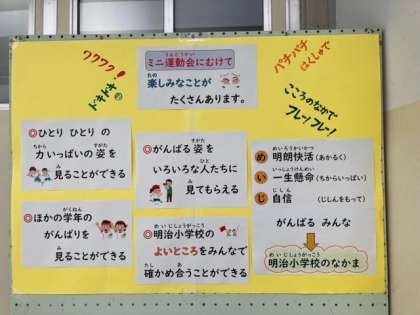 ワクワク!
ドキドキ
ミニ運動会にむけて
楽しみなことが
たくさんあります。
パチパチ
はくしゅで
こころのなかで
フレー!フレー!
◎ひとり ひとり の
力いっぱいの 姿を
見ることができる
◎ほかの学年の
がんばりを
見ることができる
◎がんばる 姿を
いろいろな人たちに
見てもらえる
◎明治小学校の
よいところをみんなで
確かめ合うことができる
め 明朗快活(あかるく)
い 一生懸命(ちからいっぱい)
じ 自信 (じしんをもって)
がんばる みんな
明治小学校のなかま